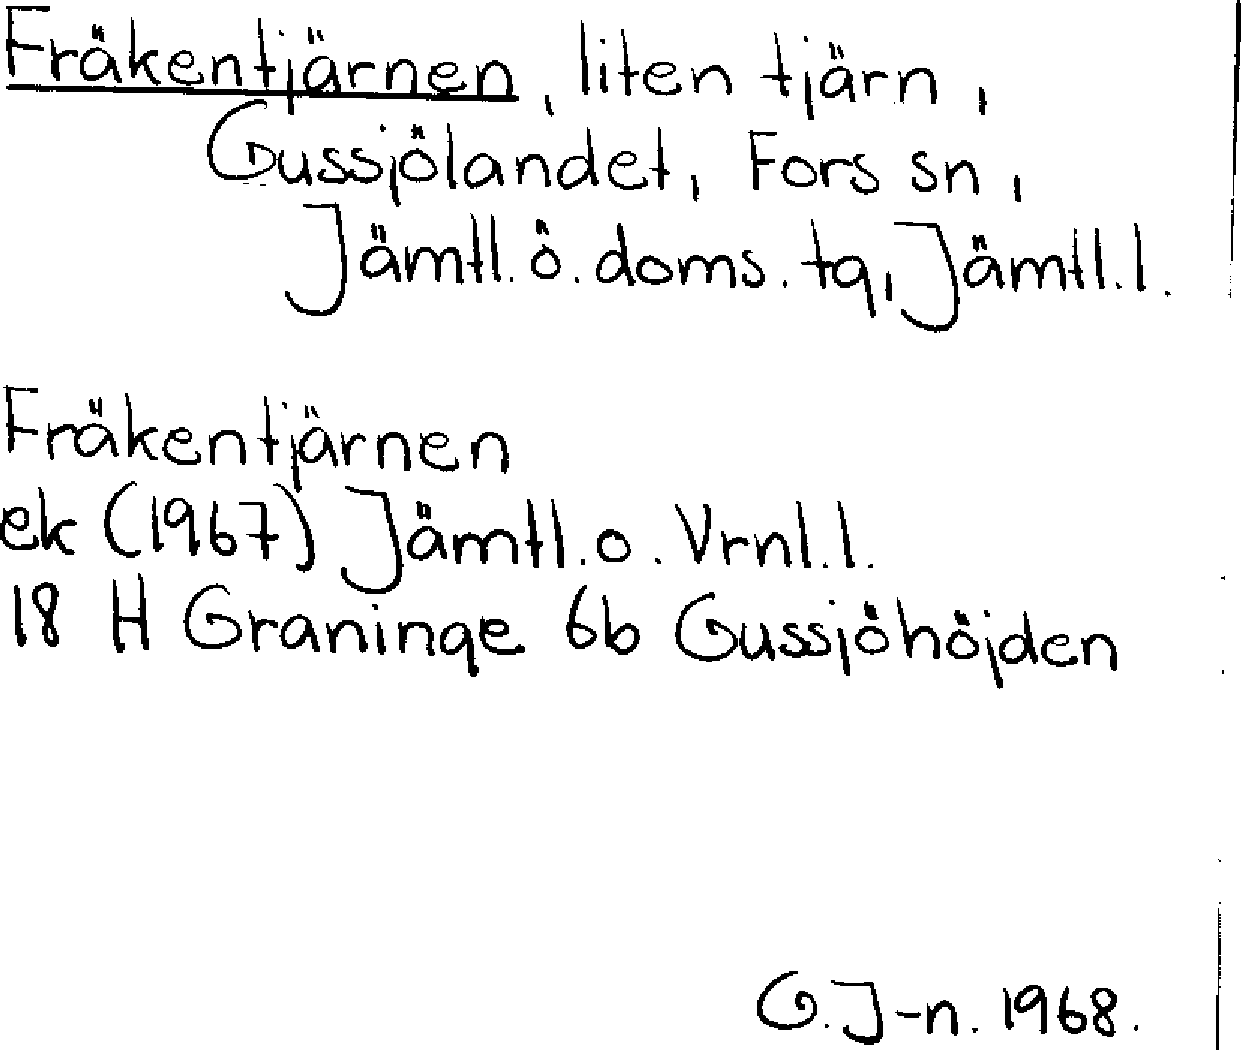 Fräkentjärnen, liten tjärn,
Gussjölandet, Fors sn,
Jämtl. ö. doms. tg, Jämtl. l.
Fräkentjärnen
ek (1967) Jämtl. o. Vrml. l.
18 H Graninge 6b Gussjöhöjden
G. J-n. 1968.